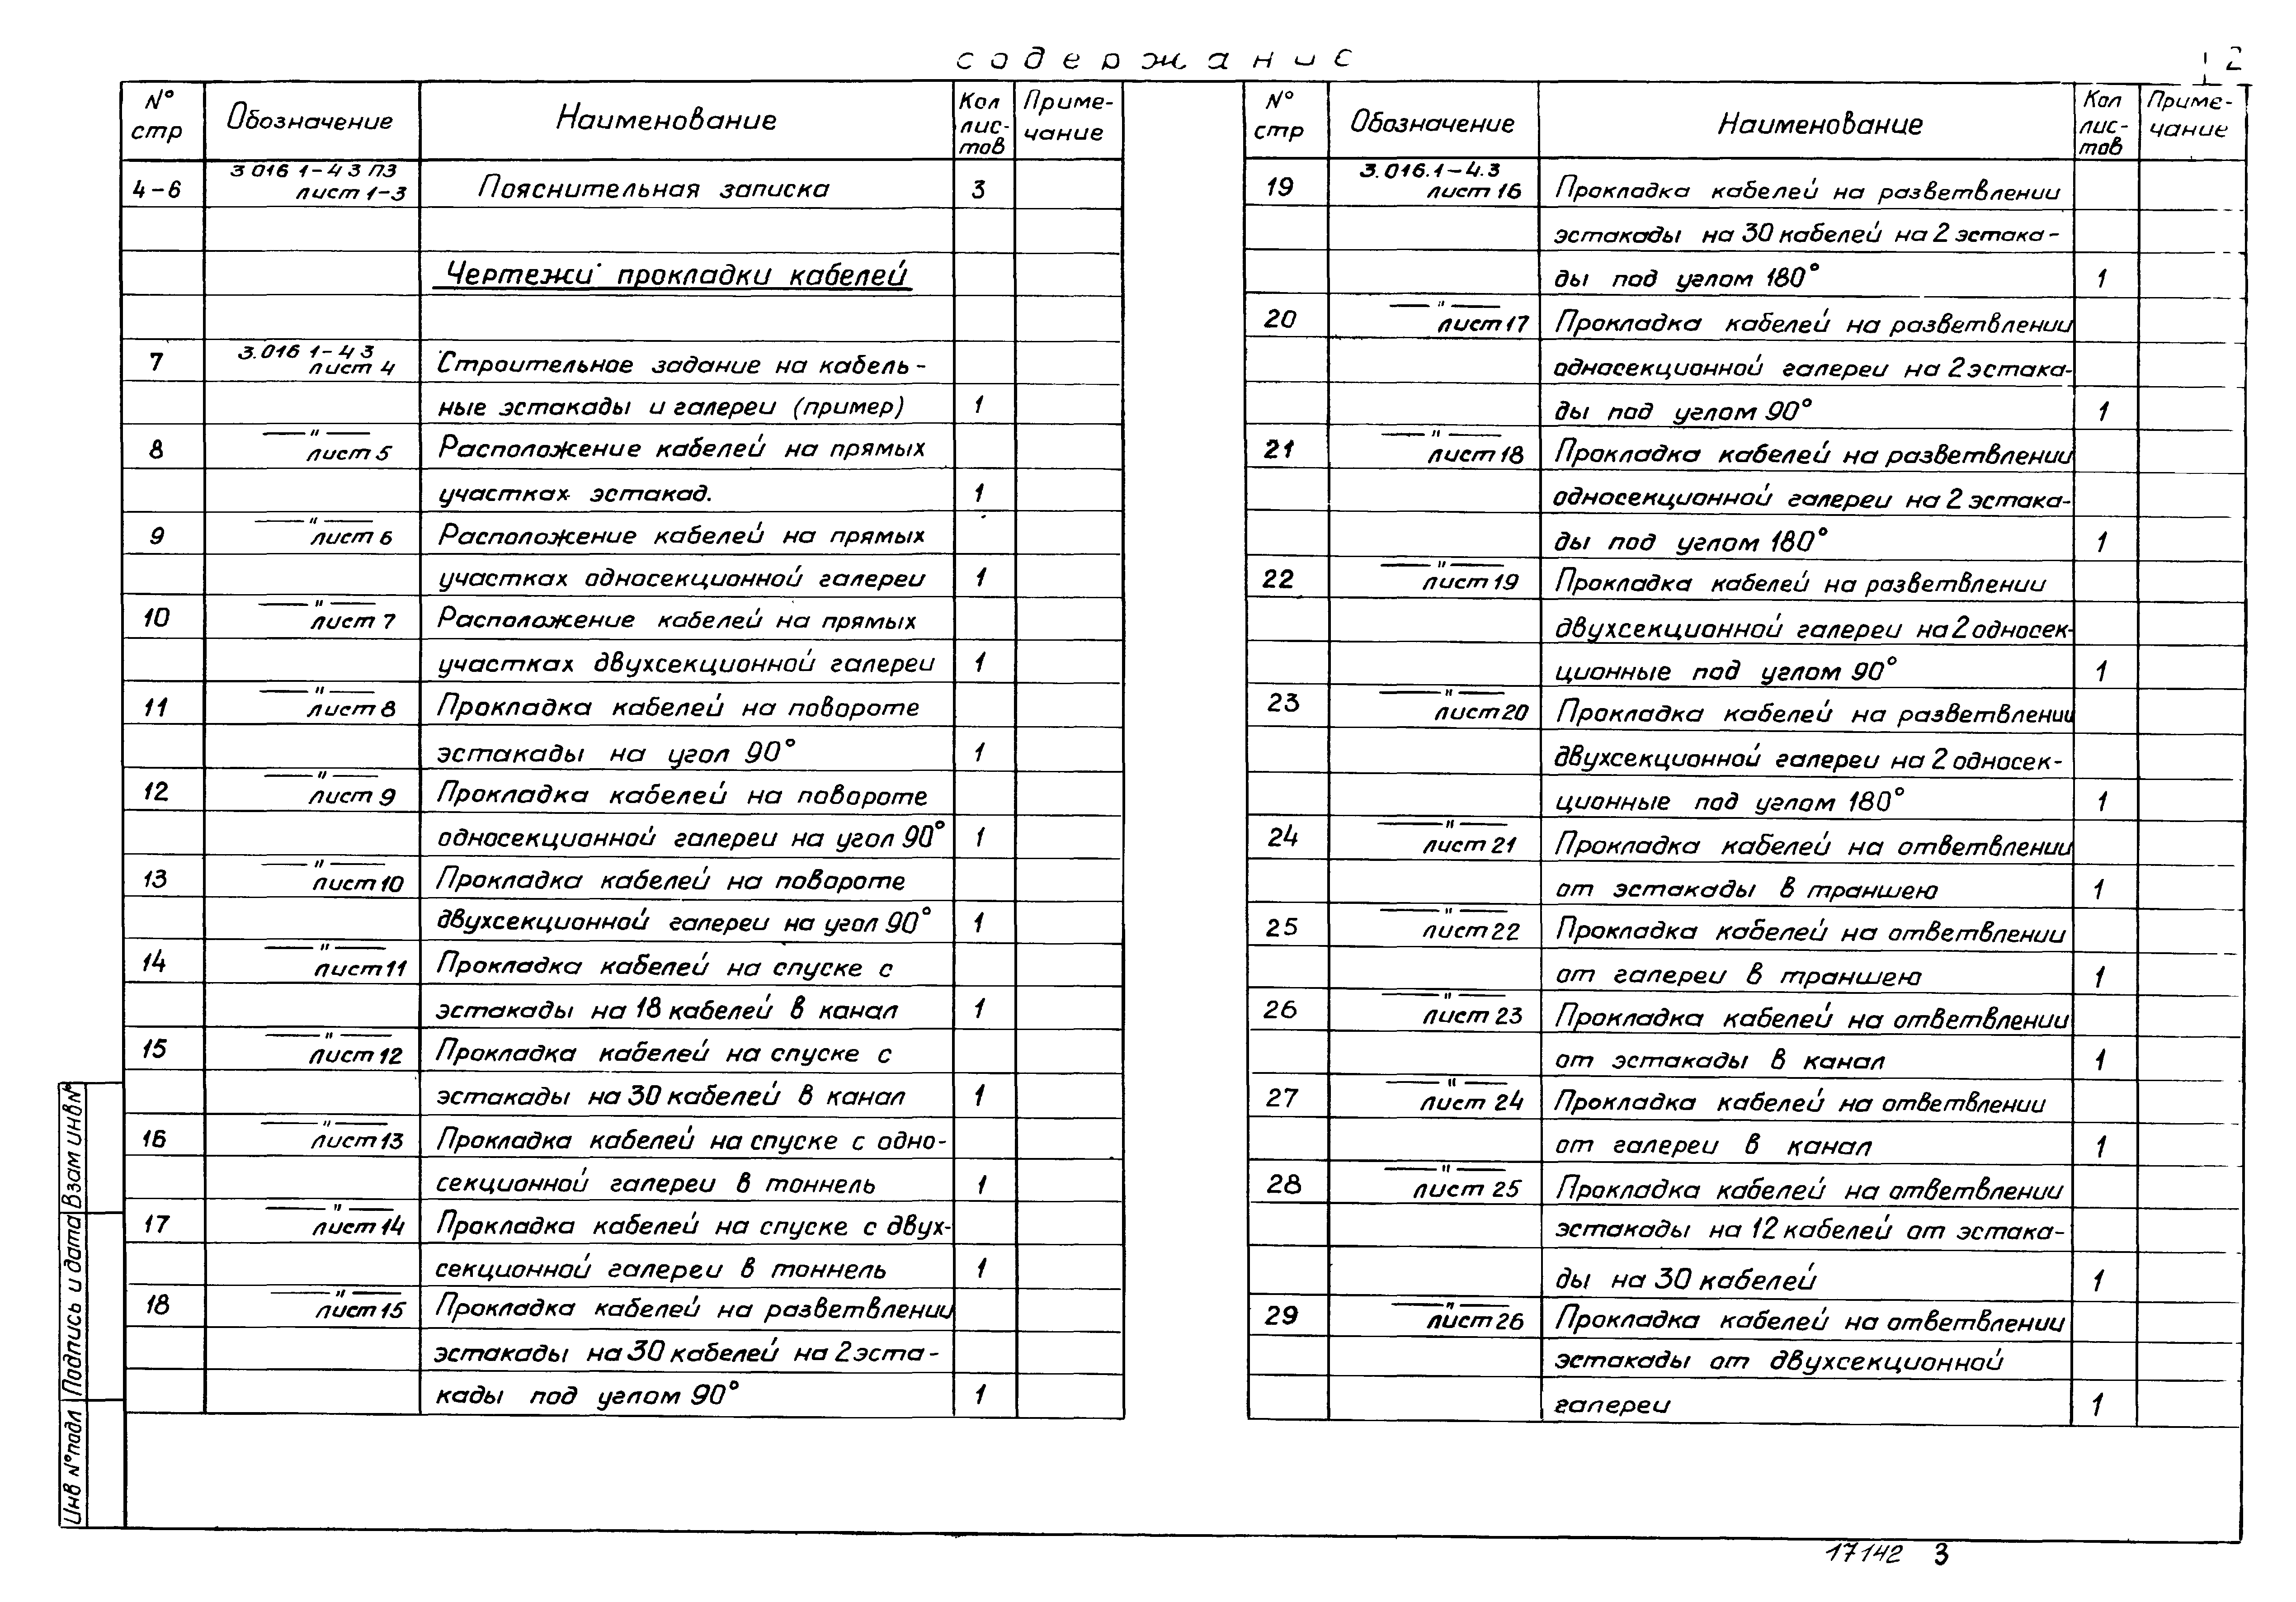 содержание
2
N° стр Обозначение Наименование Кол листов Примечание
4-6 3 016 1-4 3 ПЗ лист 1-3 Пояснительная записка 3
Чертежи прокладки кабелей
7 3.016 1-4 3 лист 4 Строительное задание на кабель-
ные эстакады и галереи (пример) 1
8 —"— лист 5 Расположение кабелей на прямых
участках эстакад. 1
9 —"— лист 6 Расположение кабелей на прямых
участках односекционной галереи 1
10 —"— лист 7 Расположение кабелей на прямых
участках двухсекционной галереи 1
11 —"— лист 8 Прокладка кабелей на повороте
эстакады на угол 90° 1
12 —"— лист 9 Прокладка кабелей на повороте
односекционной галереи на угол 90° 1
13 —"— лист 10 Прокладка кабелей на повороте
двухсекционной галереи на угол 90° 1
14 —"— лист 11 Прокладка кабелей на спуске с
эстакады на 18 кабелей в канал 1
15 —"— лист 12 Прокладка кабелей на спуске с
эстакады на 30 кабелей в канал 1
16 —"— лист 13 Прокладка кабелей на спуске с одно-
секционной галереи в тоннель 1
17 —"— лист 14 Прокладка кабелей на спуске с двух-
секционной галереи в тоннель 1
18 —"— лист 15 Прокладка кабелей на разветвлении
эстакады на 30 кабелей на 2 эста-
кады под углом 90° 1
N° стр Обозначение Наименование Кол листов Примечание
19 3.016.1-4.3 лист 16 Прокладка кабелей на разветвлении
эстакады на 30 кабелей на 2 эстака-
ды под углом 180° 1
20 —"— лист 17 Прокладка кабелей на разветвлении
односекционной галереи на 2 эстака-
ды под углом 90° 1
21 —"— лист 18 Прокладка кабелей на разветвлении
односекционной галереи на 2 эстака-
ды под углом 180° 1
22 —"— лист 19 Прокладка кабелей на разветвлении
двухсекционной галереи на 2 односек-
ционные под углом 90° 1
23 —"— лист 20 Прокладка кабелей на разветвлении
двухсекционной галереи на 2 односек-
ционные под углом 180° 1
24 —"— лист 21 Прокладка кабелей на ответвлении
от эстакады в траншею 1
25 —"— лист 22 Прокладка кабелей на ответвлении
от галереи в траншею 1
26 —"— лист 23 Прокладка кабелей на ответвлении
от эстакады в канал 1
27 —"— лист 24 Прокладка кабелей на ответвлении
от галереи в канал 1
28 —"— лист 25 Прокладка кабелей на ответвлении
эстакады на 12 кабелей от эстака-
ды на 30 кабелей 1
29 —"— лист 26 Прокладка кабелей на ответвлении
эстакады от двухсекционной
галереи 1
Инв N° подл Подпись и дата Взам инв №
17142 3